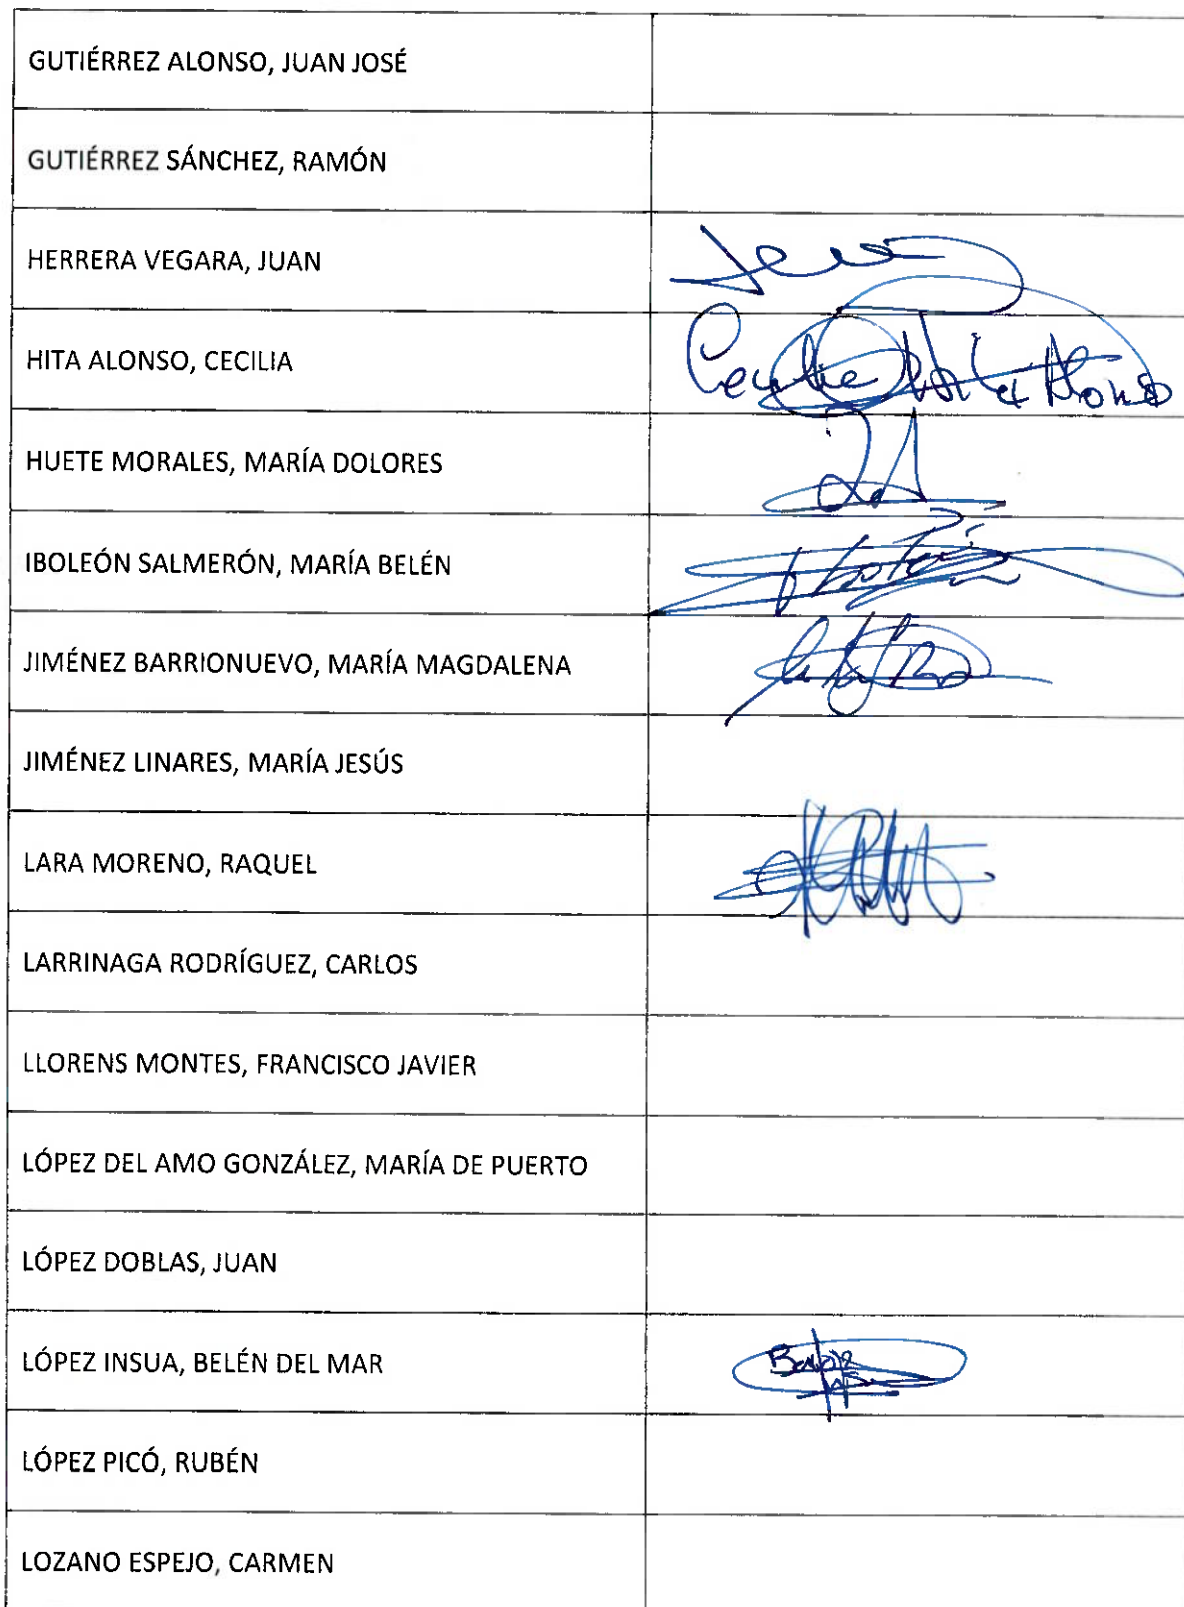 GUTIÉRREZ ALONSO, JUAN JOSÉ
GUTIÉRREZ SÁNCHEZ, RAMÓN
HERRERA VEGARA, JUAN
HITA ALONSO, CECILIA
Cecilia Hita Alonso
HUETE MORALES, MARÍA DOLORES
IBOLEÓN SALMERÓN, MARÍA BELÉN
JIMÉNEZ BARRIONUEVO, MARÍA MAGDALENA
JIMÉNEZ LINARES, MARÍA JESÚS
LARA MORENO, RAQUEL
LARRINAGA RODRÍGUEZ, CARLOS
LLORENS MONTES, FRANCISCO JAVIER
LÓPEZ DEL AMO GONZÁLEZ, MARÍA DE PUERTO
LÓPEZ DOBLAS, JUAN
LÓPEZ INSUA, BELÉN DEL MAR
LÓPEZ PICÓ, RUBÉN
LOZANO ESPEJO, CARMEN